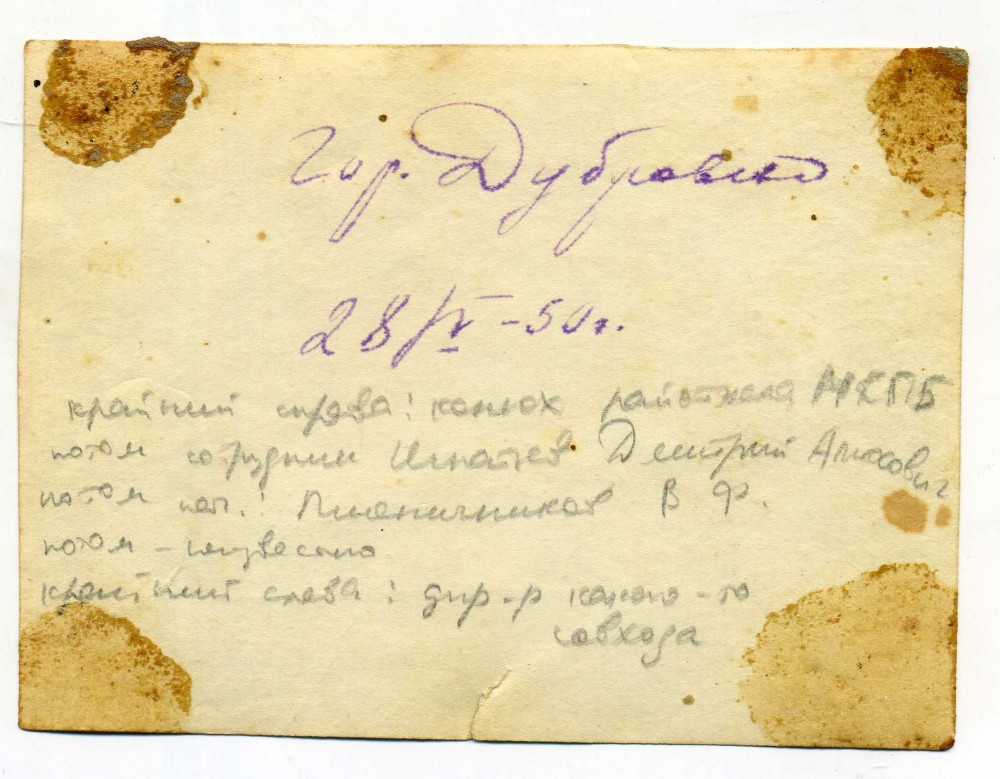 гор. Дубровно
28/IV-50г.
крайний справа: конюх райотдела МГБ
потом сотрудник Игнатьев Дмитрий
потом нач.: Пшеничников В Ф.
потом - неизвестно
крайний слева: дир-р какого-то
совхоза